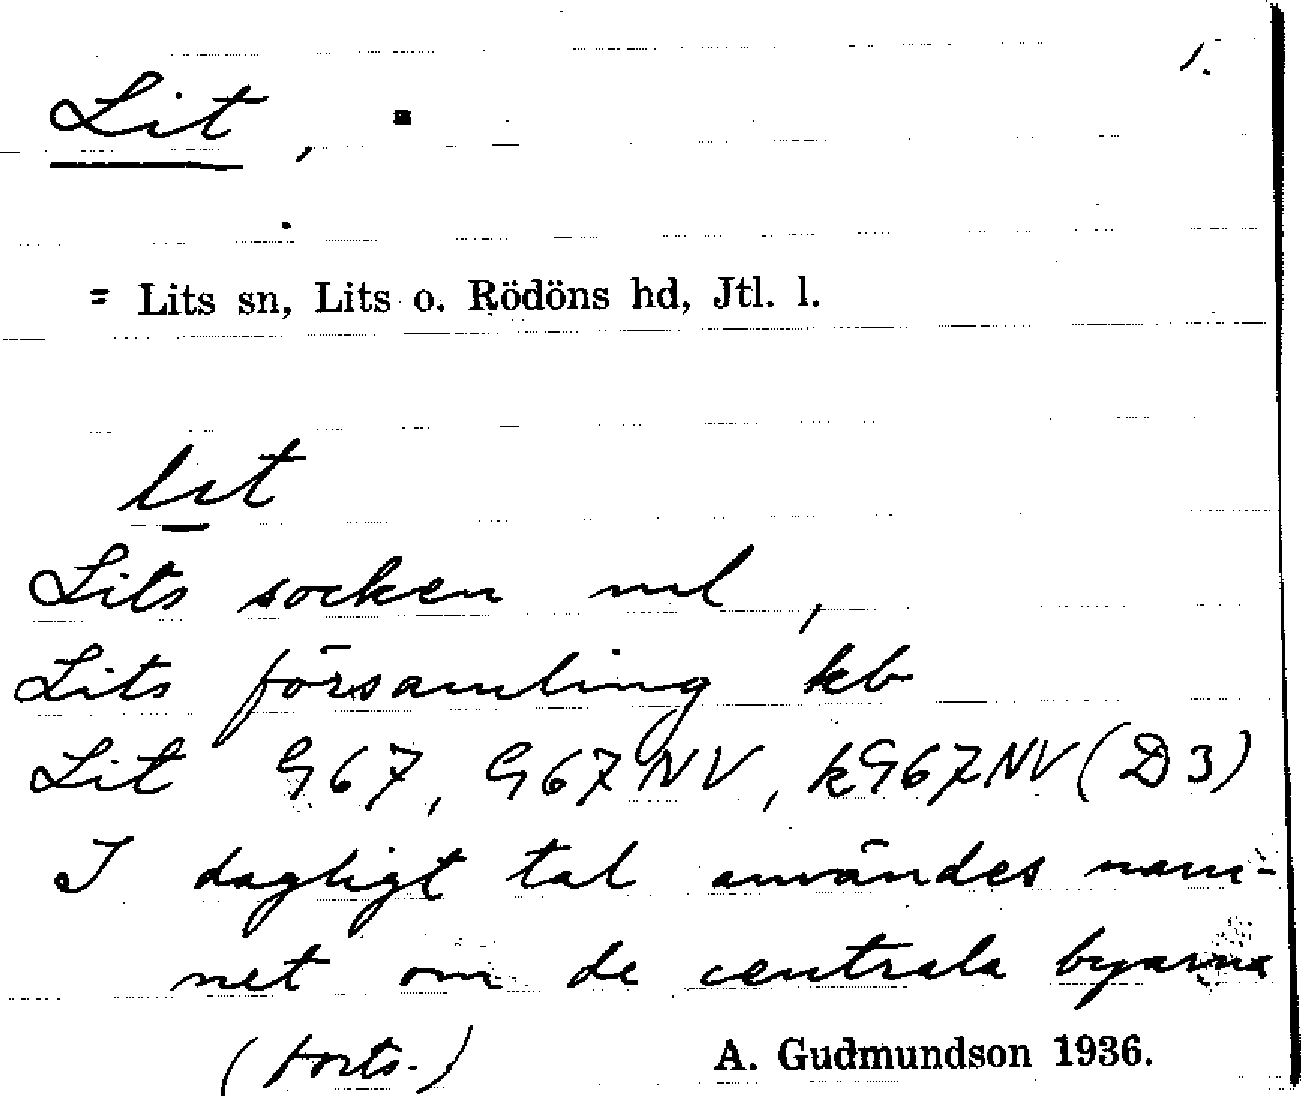 1.
Lit, =
= Lits sn, Lits o. Rödöns hd, Jtl. l.
lit
Lits socken ml,
Lits församling kb
Lit G67, G67NV, kG67NV (D3)
I dagligt tal användes nam-
net om de centrala byarna
(forts.) A. Gudmundson 1936.